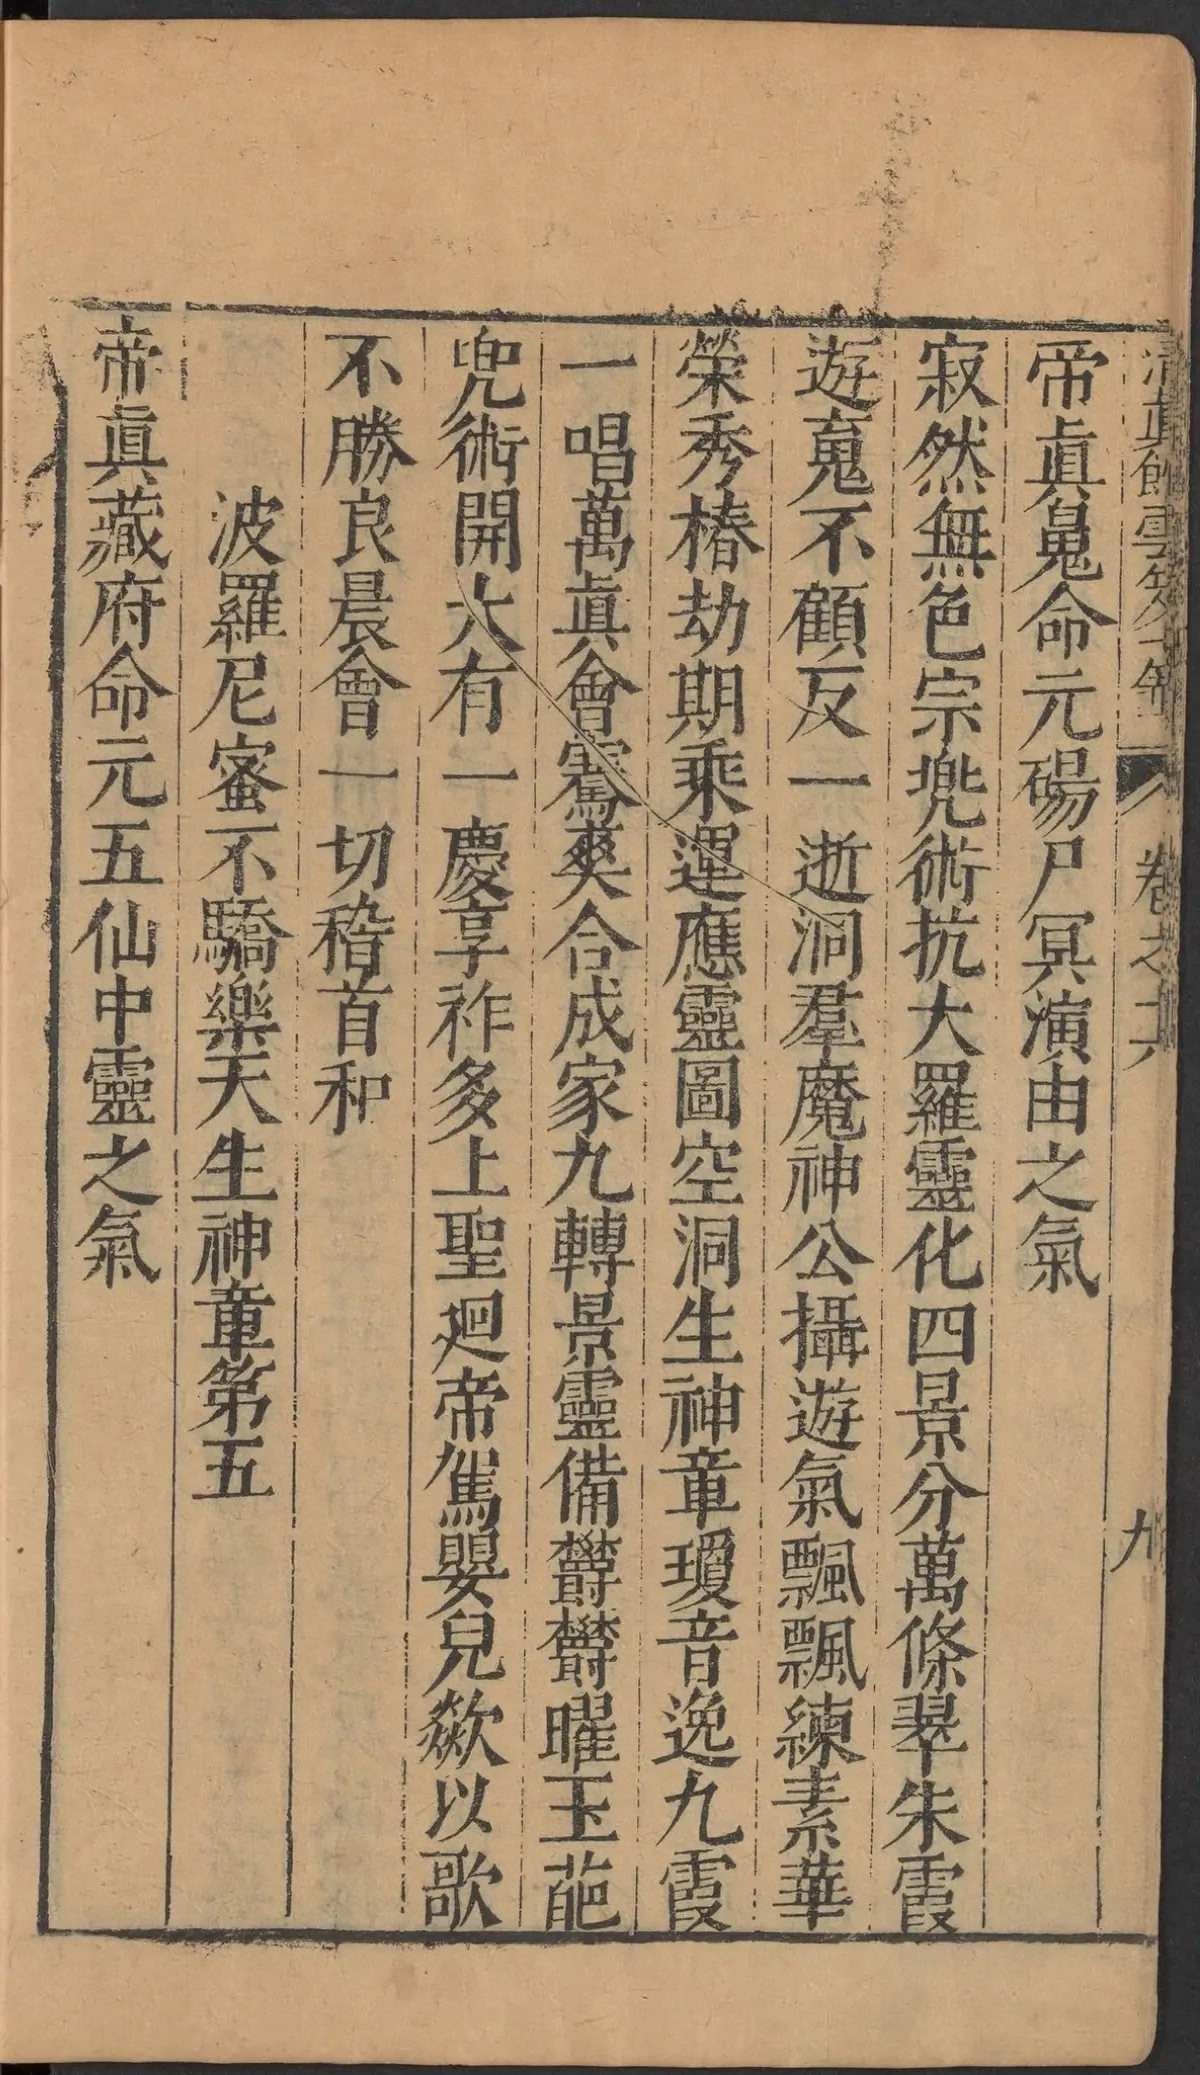 清真館雲笈七籤 卷之十六 九
帝眞䰟命元碭尸冥演由之氣
寂然無色宗兠術抗大羅靈化四景分萬條翠朱霞
遊䰟不顧反一逝洞羣魔神公攝遊氣飄飄練素華
榮秀椿劫期乘運應靈圖空洞生神章瓊音逸九霞
一唱萬眞會騫爽合成家九轉景靈備欝欝曜玉葩
兜術開大有一慶享祚多上聖廻帝駕嬰兒歘以歌
不勝良晨會一切稽首和
波羅尼蜜不驕樂天生神章第五
帝眞藏府命元五仙中靈之氣